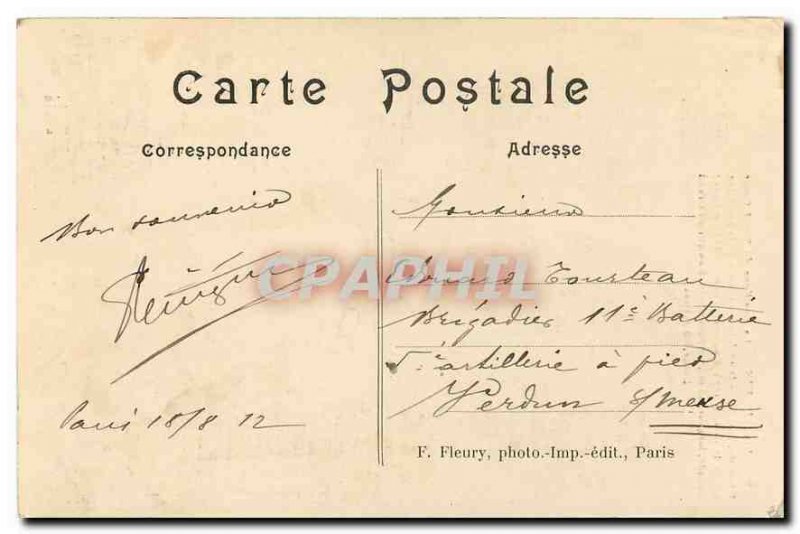 Carte Postale
Correspondance
Adresse
Bon souvenir
Paris 18/8 12
Monsieur
Tourteau
Brigadier 11e Batterie
5e artillerie à pied
Verdun s/meuse
F. Fleury, photo.-Imp.-édit., Paris
CPAPHIL